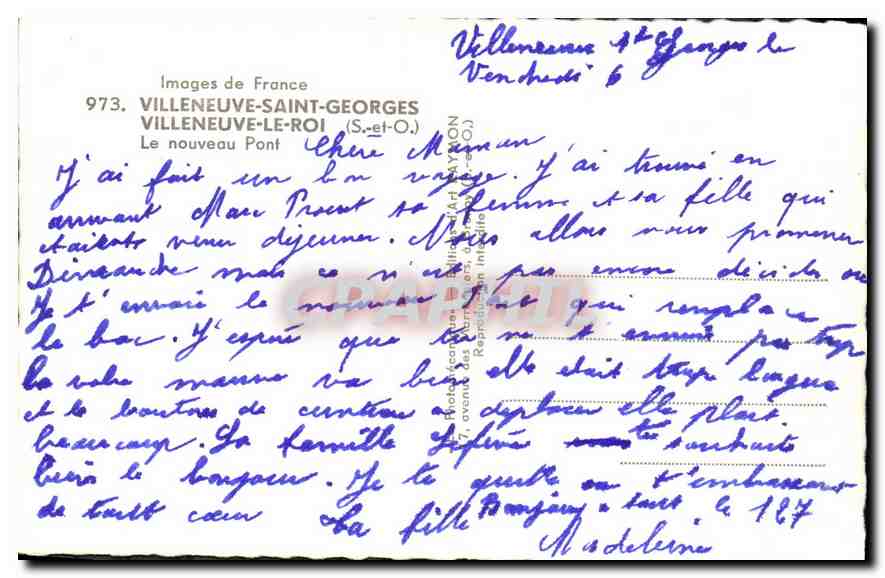 Villeneuve St Georges le
Vendredi 6
Images de France
973. VILLENEUVE-SAINT-GEORGES
VILLENEUVE-LE-ROI (S.-et-O.)
Le nouveau Pont
Chère Maman
J'ai fait un bon voyage. J'ai trouvé en
arrivant Marc Proent sa femme et sa fille qui
étaients venu déjeuner. Nous allons nous promener
Dimanche mais ce n'est pas encore décider ou
Je t'envoie le nouveau Pont qui remplace
le bac. J'espère que tu ne t'ennuie pas trop
la robe mauve va bien elle était trop longue
et le boutons de ceinture a déplacer elle plait
beaucoup. La famille Lefèvre te souhaite
bien le bonjour. Je te quitte en t'embrassant
de tout cœur
Ta fille
Bonjour a tout le 127
Madeleine
Editions d'Art RAYMON
Reproduction interdite
CRAPHIL